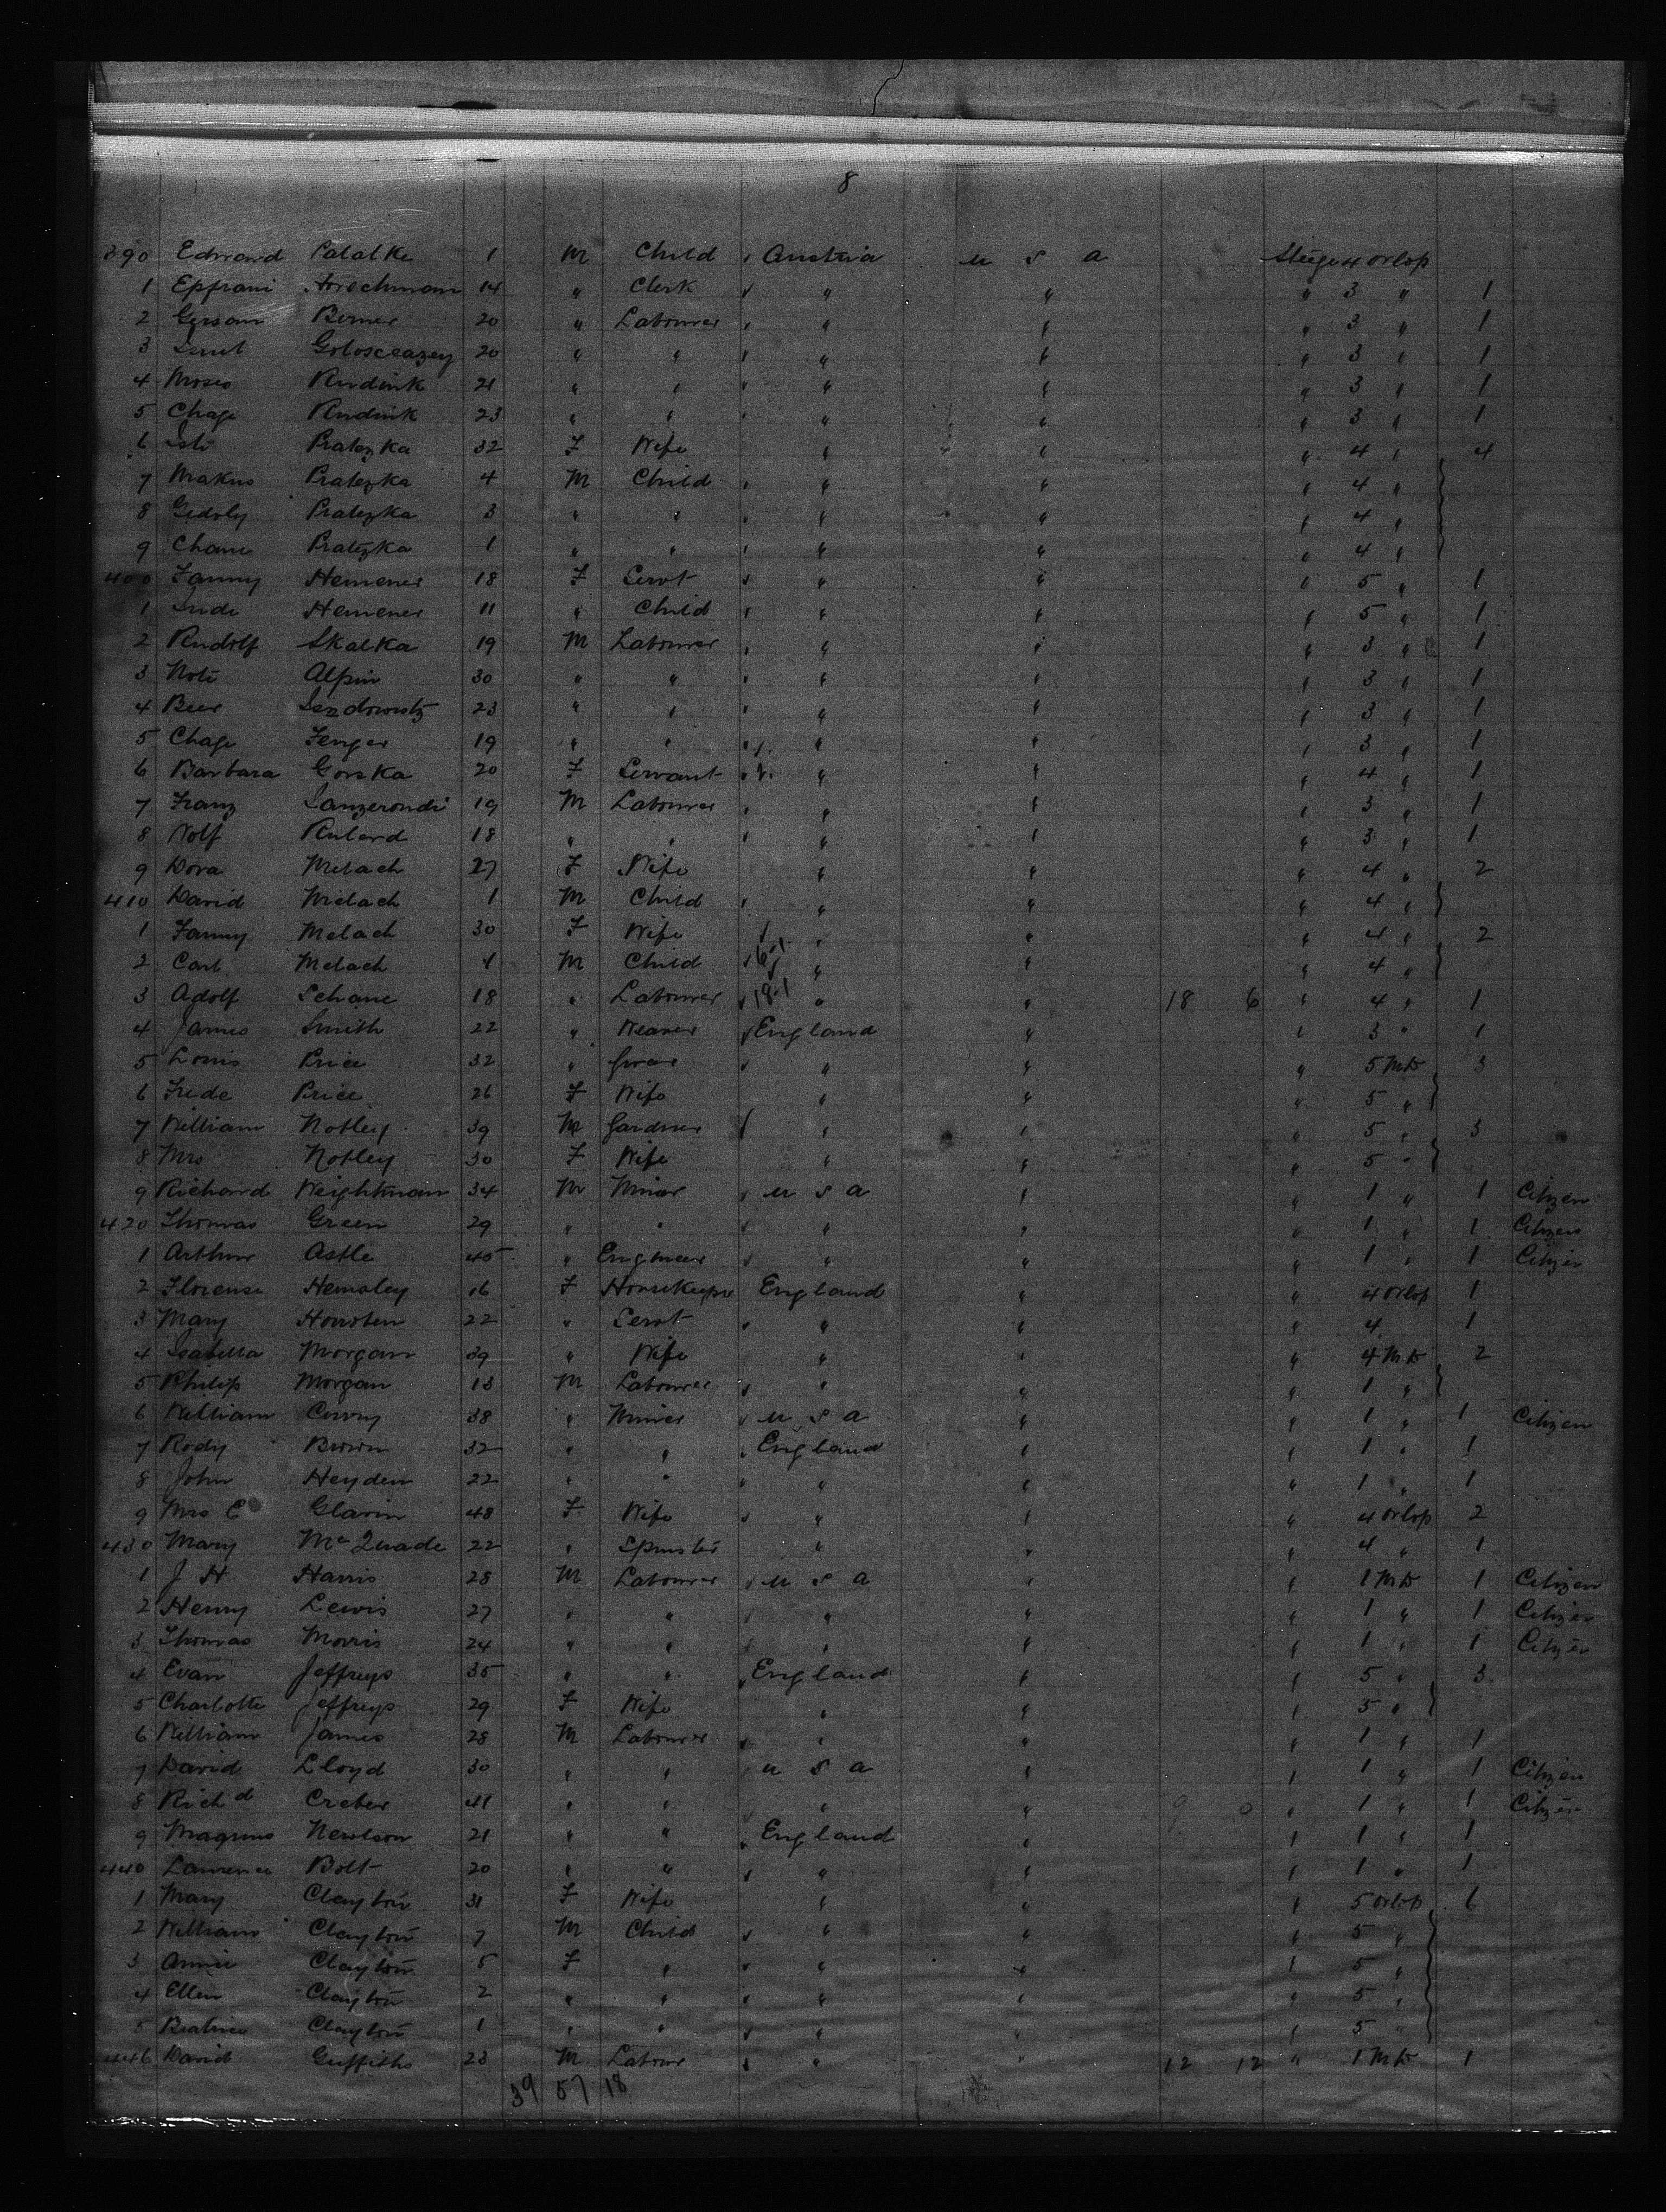 8
390 Edward Palatke 1 M Child Austria U S A Steerge 4 orlop
1 14 " Clerk " " " 3 " 1
2 Gersam Berner 20 " Labourer " " " 3 " 1
3 20 " " " " " 3 " 1
4 Moses Rudink 21 " " " " " 3 " 1
5 Chage Rudink 23 " " " " " 3 " 1
6 Pratezka 32 F Wife " " " 4 " 4
7 Makus Pratezka 4 M Child " " " 4 "
8 Gedoly Pratezka 3 " " " " " 4 "
9 Chane Pratezka 1 " " " " " 4 "
400 Fanny Hemener 18 F Servt " " " 5 " 1
1 Hemener 11 " Child " " " 5 " 1
2 Rudolf Skalka 19 M Labourer " " " 3 " 1
3 Note Alpin 30 " " " " " 3 " 1
4 Beer 23 " " " " " 3 " 1
5 Chage Fenger 19 " " " " " 3 " 1
6 Barbara Gorska 20 F Servant " " " 4 " 1
7 Franz Lanzerondi 19 M Labourer " " " 3 " 1
8 Wolf Rulard 18 " " " " " 3 " 1
9 Dora Melach 27 F Wife " " " 4 " 2
410 David Melach 1 M Child " " " 4 "
1 Fanny Melach 30 F Wife " " " 4 " 2
2 Carl Melach 1 M Child 6-1 " " " 4 "
3 Adolf Schane 18 " Labourer 18-1 " " 18 6 " 4 " 1
4 James Smith 22 " Weaver England " " 3 " 1
5 Louis Price 32 " " " " 5 MD 3
6 Frede Price 26 F Wife " " " 5 "
7 William Notley 39 M Gardner " " " 5 " 3
8 Mrs Notley 30 F Wife " " " 5 "
9 Richard Weightman 34 M Miner U S A " " 1 " 1 Citizen
420 Thomas Green 29 " " " " " 1 " 1 Citizen
1 Arthur Astle 45 " Engineer " " " 1 " 1 Citizen
2 Florense Hemsley 16 F Housekeeper England " " 4 orlop 1
3 Mary Housten 22 " Servt " " " 4 1
4 Isabella Morgan 39 " Wife " " " 4 MD 2
5 Philip Morgan 13 M Labourer " " " 1 "
6 William Curry 38 " Miner U S A " " 1 " 1 Citizen
7 Rody Brown 32 " " England " " 1 " 1
8 John Heyden 22 " " " " " 1 " 1
9 Mrs C Glavin 48 F Wife " " " 4 orlop 2
430 Mary McQuade 22 " Spinster " " " 4 " 1
1 J H Harris 28 M Labourer U S A " " 1 MD 1 Citizen
2 Henry Lewis 27 " " " " " 1 " 1 Citizen
3 Thomas Morris 24 " " " " " 1 " 1 Citizen
4 Evan Jeffreys 35 " " England " " 5 " 3
5 Charlotte Jeffreys 29 F Wife " " " 5 "
6 William James 28 M Labourer " " " 1 " 1
7 David Lloyd 30 " " U S A " " 1 " 1 Citizen
8 Richd Creber 41 " " " " 9 0 " 1 " 1 Citizen
9 Magnus Newlson 21 " " England " " 1 " 1
440 Laurence Bolt 20 " " " " " 1 " 1
1 Mary Clayton 31 F Wife " " " 5 orlop 6
2 William Clayton 7 M Child " " " 5 "
3 Annie Clayton 5 F " " " " 5 "
4 Ellen Clayton 2 " " " " " 5 "
5 Beatrice Clayton 1 " " " " " 5 "
446 David Griffiths 23 M Labour " " 12 12 " 1 MD 1
39 57 18